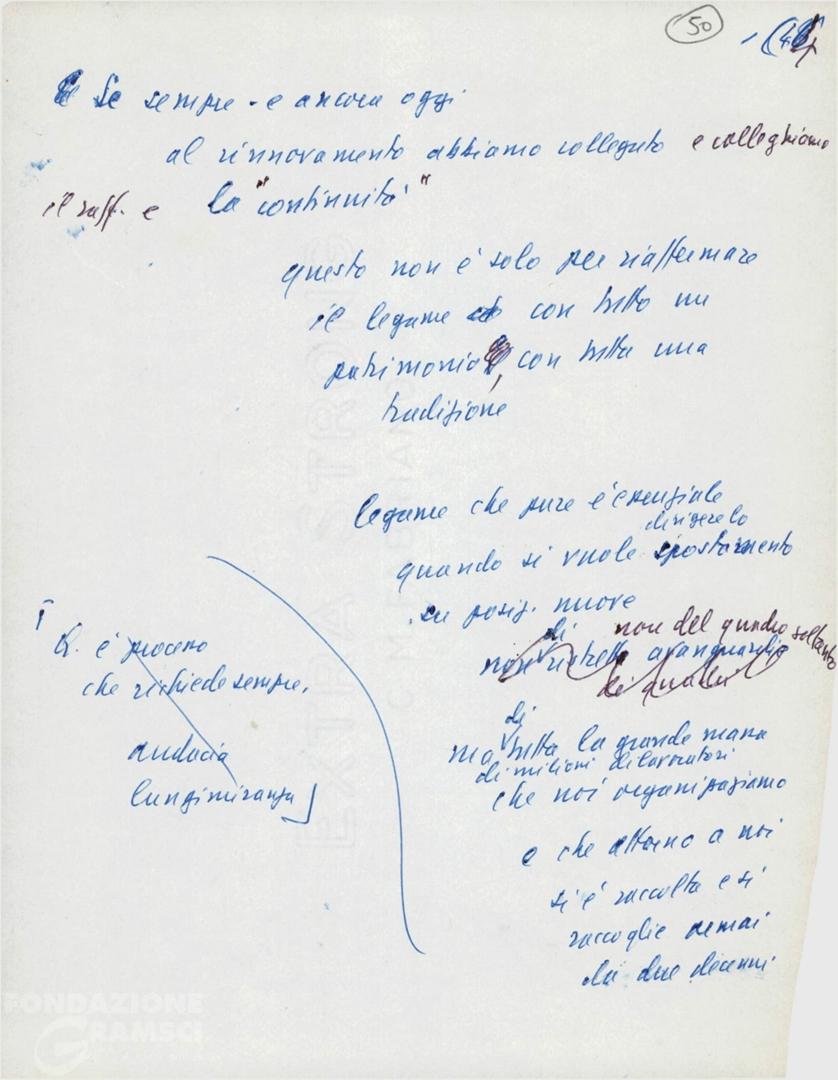 50
Se sempre - e ancora oggi
al rinnovamento abbiamo collegato e colleghiamo
il raff. e la "continuità"
questo non è solo per riaffermare
il legame con tutto un
patrimonio, con tutta una
tradizione
legame che pure è essenziale
dirigere lo
quando si vuole spostamento
su posiz. nuove
di non del quadro soltanto
non ristretta avanguardia
di quadri
di
ma tutta la grande massa
di milioni di lavoratori
che noi organizziamo
e che attorno a noi
si è raccolta e si
raccoglie ormai
da due decenni
è processo
che richiede sempre,
audacia
lungimiranza
EXTRA STRONG
FONDAZIONE
GRAMSCI